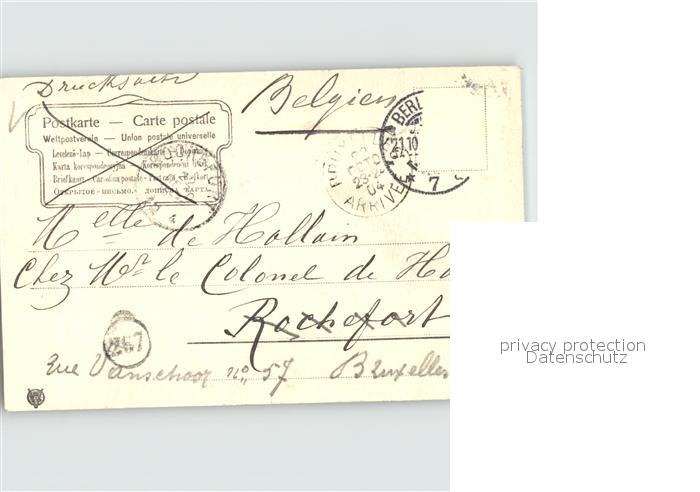 Drucksache
Belgien
Postkarte — Carte postale
Weltpostverein — Union postale universelle
Levelező-Lap — Correspondenzkarte
Karta korespondencyjna — Korespondenční lístek
Briefkaart — Cartolina postale
Открытое письмо. Дописна карта.
BERL
21.10
7
22
OCTO
23-24
04
ARRIVEE
Melle de Hollain
Chez Mr. le Colonel de Ho
Rochefort
257
rue Vanschoor no. 57 Bruxelles
privacy protection
Datenschutz